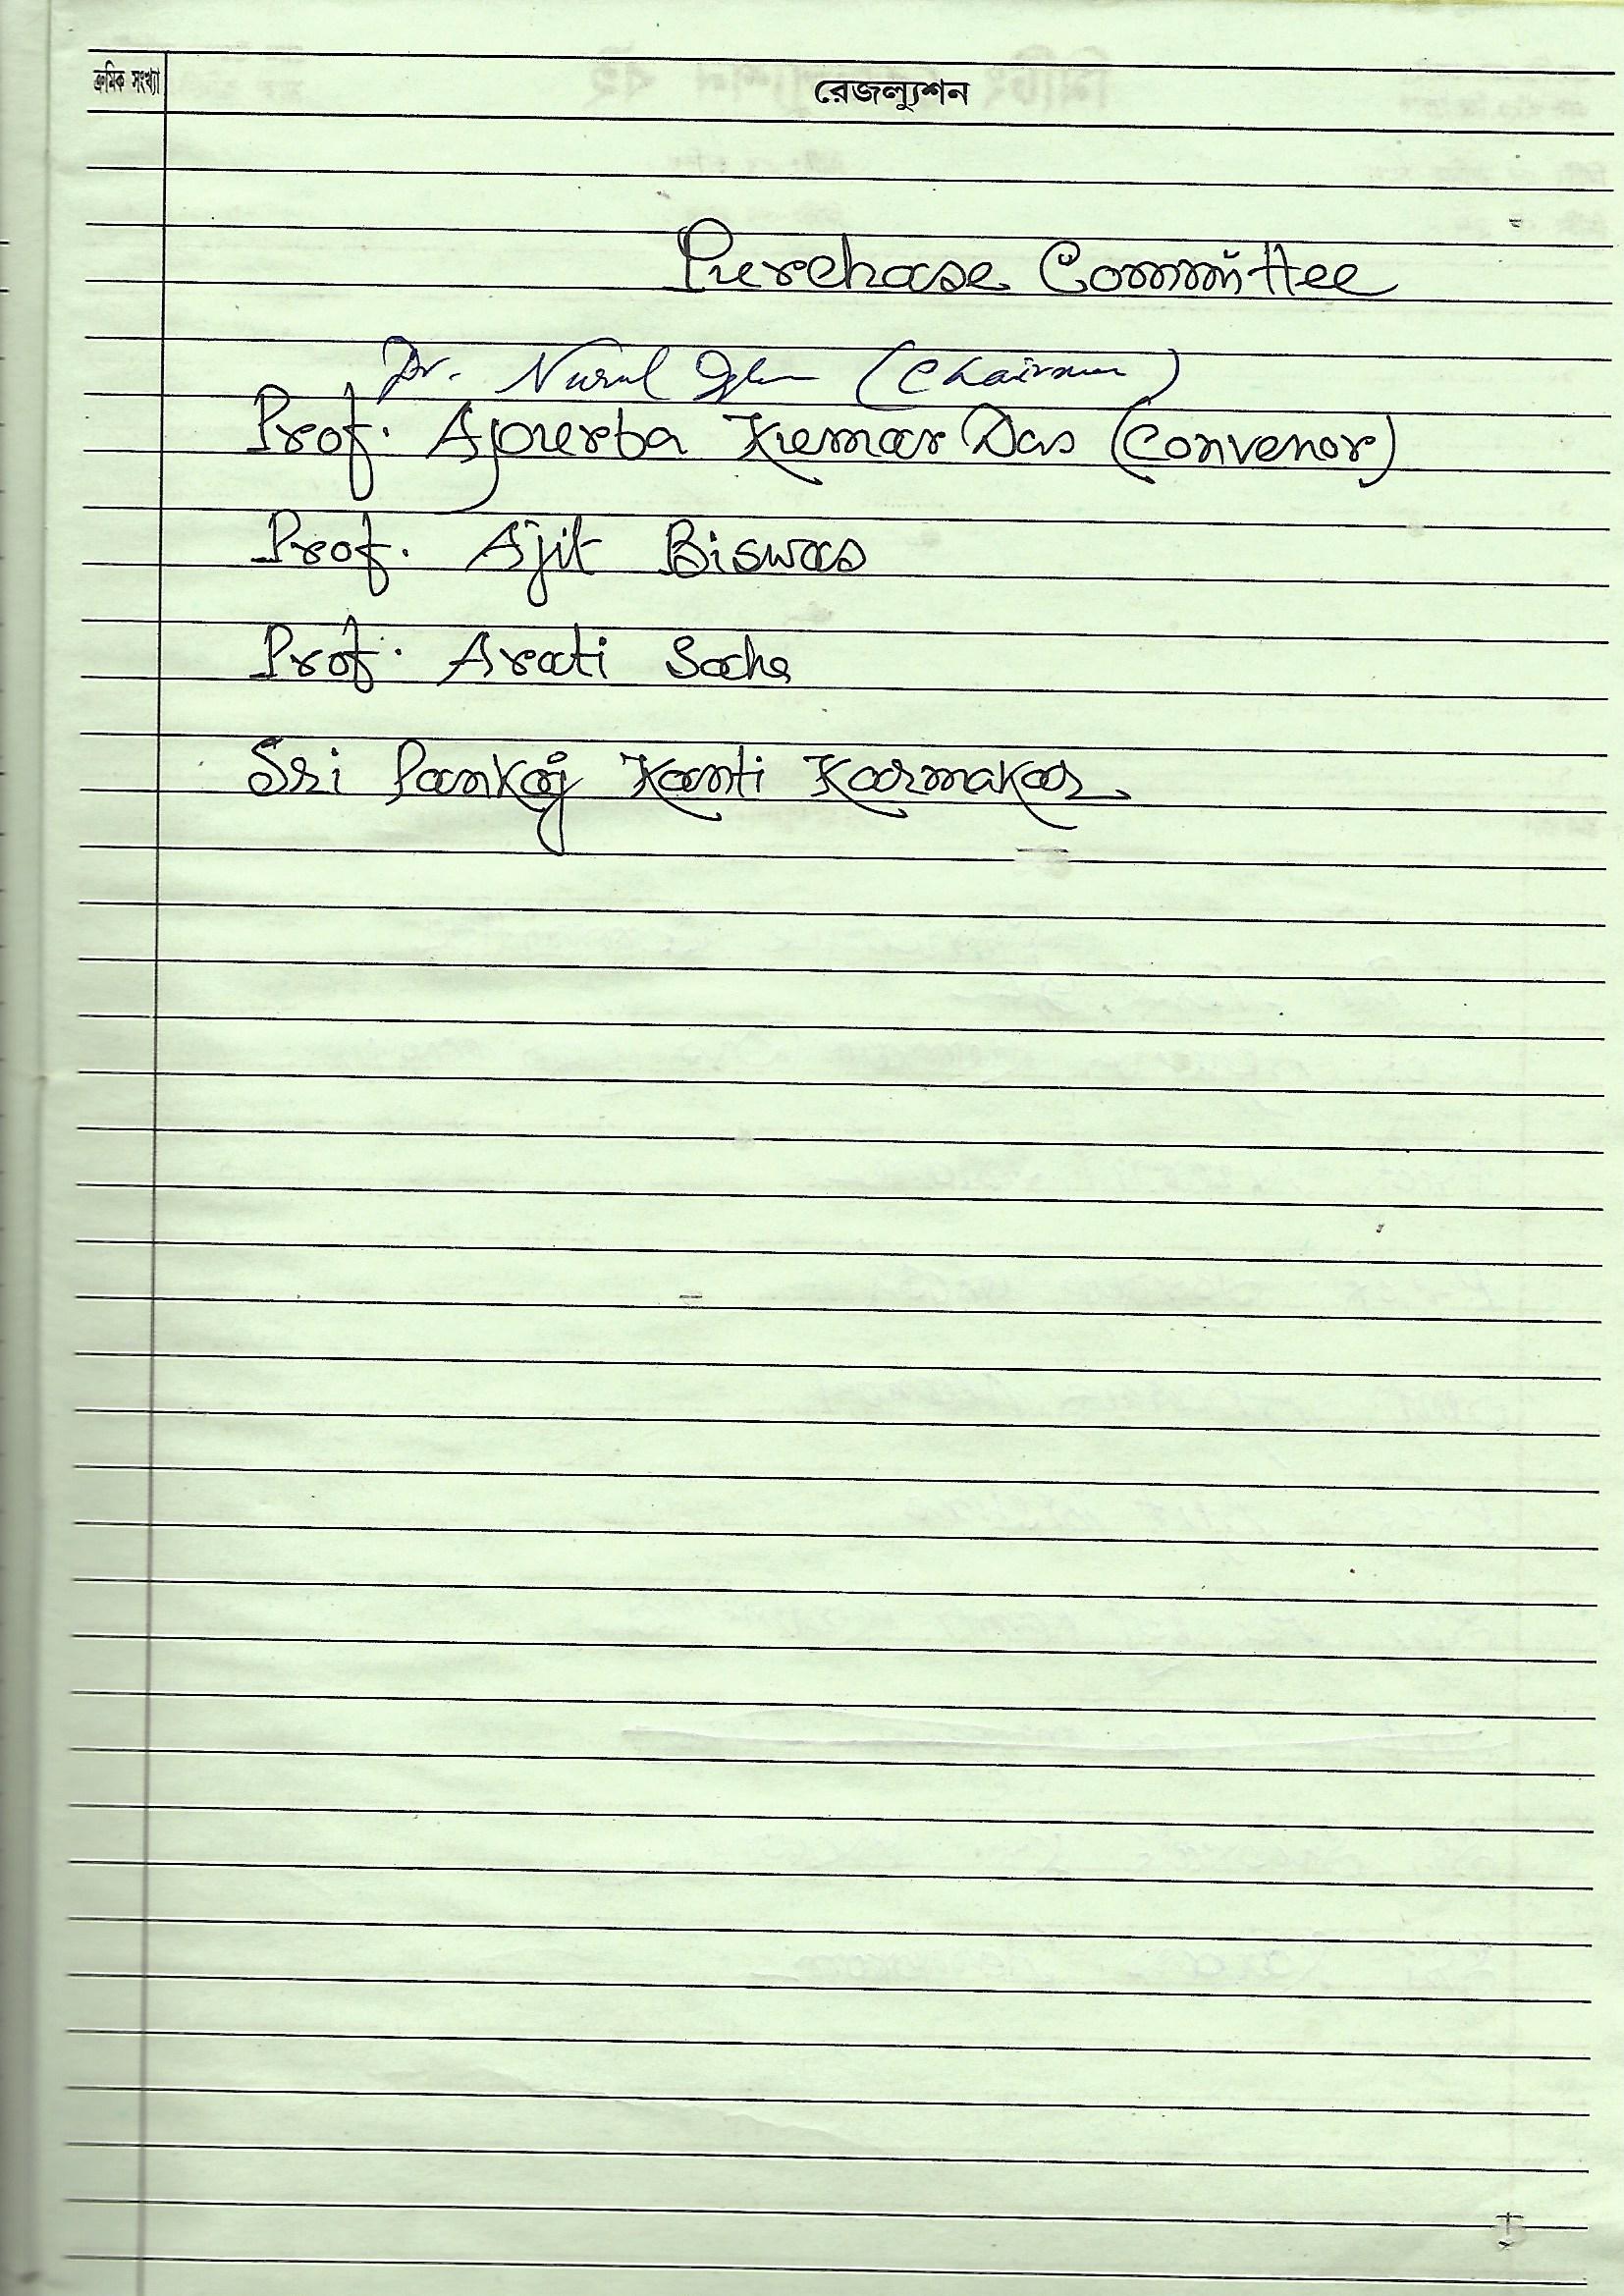 ক্রমিক সংখ্যা
রেজল্যুশন
Purchase Committee
Dr. Nurul Islam (Chairman)
Prof. Apurba Kumar Das (Convenor)
Prof. Ajit Biswas
Prof. Arati Saha
Sri Pankaj Kanti Karmakar